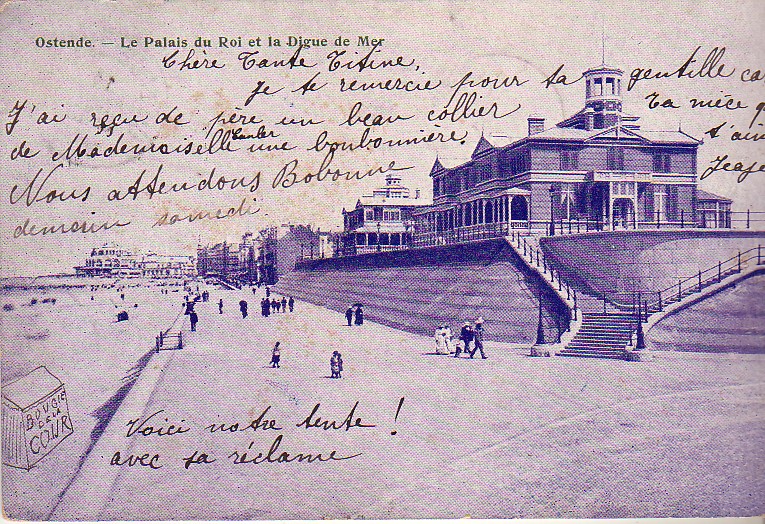 Ostende. — Le Palais du Roi et la Digue de Mer
Chère Tante Titine,
Je te remercie pour ta gentille ca
J'ai reçu de père un beau collier
de Mademoiselle une bonbonnière.
Nous attendons Bobonne
demain samedi.
Ta nièce q
t'aim
BOUGIE
DE LA
COUR
Voici notre tente !
avec sa réclame